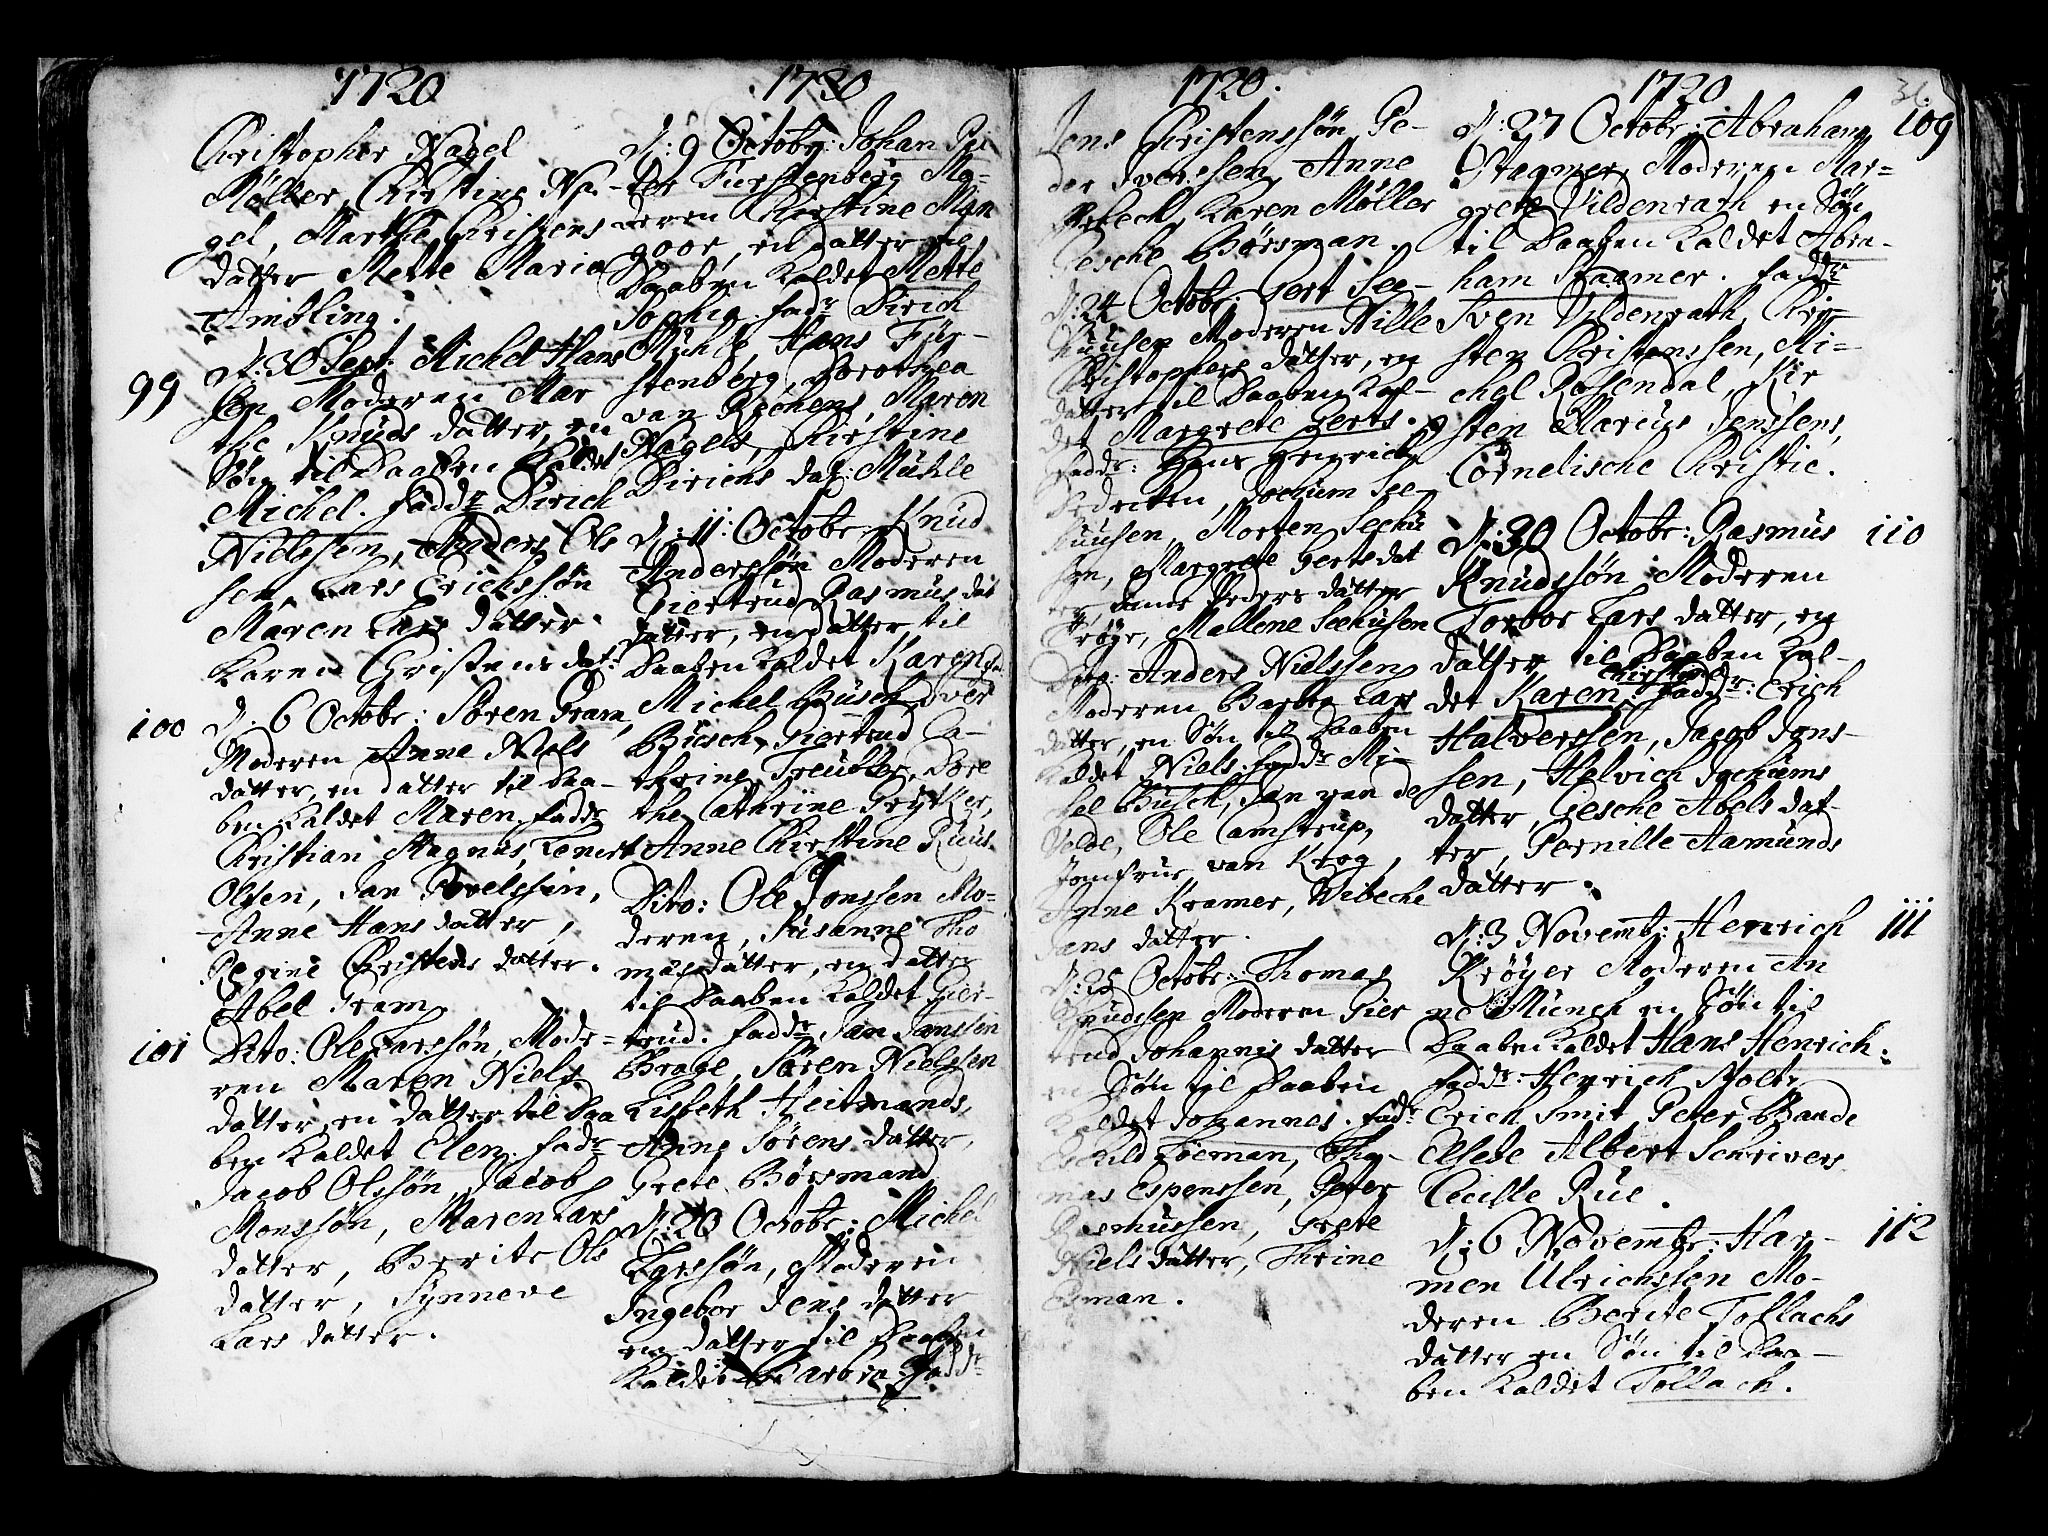 1720
Christopher Nagel
Møller, Christine Na-
gel, Marthe Christens
datter Mette Maria
Ambling.
99
d. 30 Sept: Michel Hans
sen Moderen Mar
the Knuds datter, en
Søn til Daaben kaldet
Michel. fadd:r Dirich
Nielssen, Anders Ols
sen, Lars Erichssøn
Maren Lars datter
Karen Christens dat:
100
d. 6 Octobr: Søren Gram,
Moderen Anne Niels
datter, en datter til Daa-
ben kaldet Maren. fadd:r
Christian Magnus,
Olsen, Jan Poelssen,
Anne Hans datter,
Regine Christens datter.
Abel Gram
101
Dito: Ole Larssøn, Mode-
ren Maren Niels
datter, en datter til Daa
ben kaldet Elen. fad:r
Jacob Olssøn, Jacob
Monssøn, Maren Lars
datter, Berite Ols
datter, Synneve
Lars datter.
1720
d: 9 Octobr: Johan Pe
ter Furstenberg Mo-
deren Chirstine Man
goor, en datter til
Daaben kaldet Mette
Sophia. fad:r Dirich
Mühle, Hans Für-
stenberg, Dorothea
van Rechens, Maren
Nagels, Chirstine
Diriens dat: Mühle
d: 11: Octobr Knud
Anderssøn Moderen
Giertrud Rasmus dat
datter, en datter til
Daaben kaldet Karen
Michel Busch, Iver
Busch, Giertrud Ca-
thrine Treubler, Dore
the Cathrine Grytker,
Anne Chirstine Ruus.
Dito: Ole Jonssen Mo-
deren, Susanne Tho
mas datter, en datter
til Daaben kaldet Gier-
trud. fadd:r Jan Janssen
Brage, Søren Nielssen
Lisbeth Heitmands,
Anne Sørens datter,
Grete Børsmand
d: 20 Octobr: Michel
Larssøn, Moderen
Ingebor Jens datter
en datter til Daaben
kaldet Barbra Fadd:r
1720.
Jens Christenssøn, Pe-
der Iverssen, Anne
Rebech, Karen Møller
Gesche Børsman.
d: 24 Octobr: Gert See-
huusen Moderen Nille
Christophers datter, en
datter til Daaben kal-
det Margrete Gerts.
fadd:r: Hans Henrich
Dedecken, Jochum See-
huusen, Morten Seehu
sen, Margrete Gerts dat
er Peders datter
Krøye, Mallene Seehusen
Dito: Anders Nielssen
Moderen Barbra Lars
datter, en Søn til Daaben
kaldet Niels. fadd:r Mi-
chel Busch, Jan van de
Velde, Ole Camstrup,
Jomfrue van Krog,
Anne Kramer, Wibeche
Jens datter.
d: 25 Octobr: Thomas
Knudssen Moderen Gier
trud Johannis datter
en Søn til Daaben
kaldet Johannes. fad:r
Eskild Loeman, Tho-
mas Espenssen, Peter
Rasmussen, Grete
Niels datter, Thrine
Boman.
1720
36.
109
d: 27 Octobr: Abraham
Stagmer, Moderen Mar-
grete Vildenrath en Søn
til Daaben kaldet Abra-
ham Stagmer. fadd:r
Sven Vildenrath, Chir-
sten Christenssen, Mi-
chel Rosendal, Kir
sten Marcus Jenssens,
Cornelische Christie.
110
d: 30 Octobr: Rasmus
Knudssøn Moderen
Torbor Lars datter, en
datter til Daaben kal-
det Karen. fadd:r: Erich
Halverssen, Jacob Jons-
sen, Helvich Jochums
datter, Gesche Abels dat-
ter, Pernille Aamunds
datter.
111
d: 3 Novembr: Henrich
Krøyer Moderen An
ne Munch en Søn til
Daaben kaldet Hans Henrich.
fadd:r: Henrich Nolte
Erich Smit Peter Baade
Elsebe Albert Schrivers
Cecille Rue.
112
d: 6 Novembr: Har-
men Ulrichssen Mo-
deren Berite Tollachs
datter en Søn til Daa-
ben kaldet Tollach.